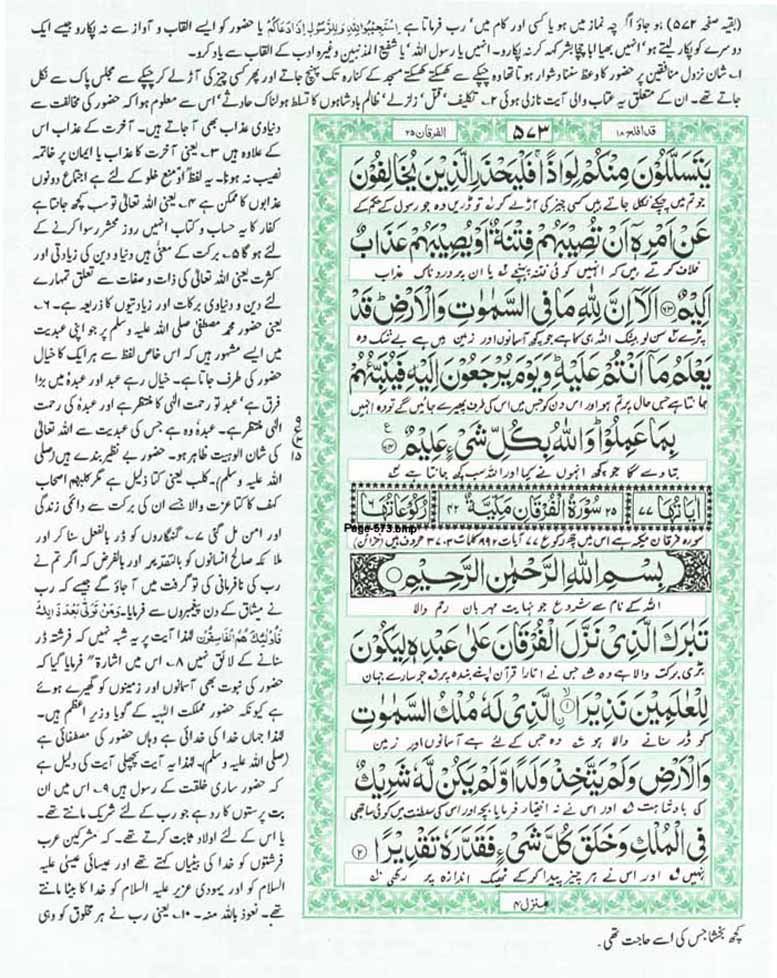 (بقیہ صفحہ ۵۷۲) ہو جاؤ اگرچہ نماز میں ہو یا کسی اور کام میں' رب فرماتا ہے اِسْتَجِیْبُوْا لِلّٰہِ وَلِلرَّسُوْلِ اِذَا دَعَاکُمْ یا حضور کو ایسے القاب و آواز سے نہ پکارو جیسے ایک
دوسرے کو پکار لیتے ہو' انہیں بھیا ابا چچا بشر کہہ کر نہ پکارو۔ انہیں یا رسول اللہ' یا شفیع المذنبین وغیرہ ادب کے القاب سے یاد کرو۔
۱۔ شان نزول منافقین پر حضور کا وعظ سننا دشوار ہوتا تھا وہ چپکے سے کھسکتے کھسکتے مسجد کے کنارہ تک پہنچ جاتے اور پھر کسی چیز کی آڑ لے کر چپکے سے مجلس پاک سے نکل
جاتے تھے۔ ان کے متعلق یہ عتاب والی آیت نازل ہوئی ۲۔ تکلیف' قتل' زلزلے' ظالم بادشاہوں کا تسلط ہولناک حادثے' اس سے معلوم ہوا کہ حضور کی مخالفت سے
دنیاوی عذاب بھی آ جاتے ہیں۔ آخرت کے عذاب اس
کے علاوہ ہیں ۳۔ یعنی آخرت کا عذاب یا ایمان پر خاتمہ
نصیب نہ ہونا۔ یہ لفظ اَوْ منع خلو کے لئے ہے اجتماع دونوں
عذابوں کا ممکن ہے ۴۔ یعنی اللہ تعالیٰ تو سب کچھ جانتا ہے
کفار کا یہ حساب و کتاب انہیں روز محشر رسوا کرنے کے
لئے ہو گا ۵۔ برکت کے معنیٰ ہیں دنیا و دین کی زیادتی اور
کثرت یعنی اللہ تعالیٰ کی ذات و صفات سے تعلق تمہارے
لئے دین و دنیاوی برکات اور زیادتیوں کا ذریعہ ہے۔ ۶۔
یعنی حضور محمد مصطفیٰ صلی اللہ علیہ وسلم پر جو اپنی عبدیت
میں ایسے مشہور ہیں کہ اس خاص لفظ سے ہر ایک کا خیال
حضور کی طرف جاتا ہے۔ خیال رہے عبد اور عبدہٗ میں بڑا
فرق ہے' عبد تو رحمت الٰہی کا منتظر ہے اور عبدہٗ کی رحمت
الٰہی منتظر ہے۔ عبدہٗ وہ ہے جس کی عبدیت سے اللہ تعالیٰ
کی شان الوہیت ظاہر ہو۔ حضور بے نظیر بندے ہیں (صلی
اللہ علیہ وسلم)۔ کلب یعنی کتا ذلیل ہے مگر کلبھم اصحاب
کہف کا کتا عزت والا جسے ان کی برکت سے دائمی زندگی
اور امن مل گئی ۷۔ گنہگاروں کو ڈر بالفعل سنا کر اور
ملائکہ صالح انسانوں کو بالتقدیر اور بالفرض کہ اگر تم نے
رب کی نافرمانی کی تو گرفت میں آ جاؤ گے جیسے کہ رب
نے میثاق کے دن پیغمبروں سے فرمایا۔ وَمَنْ تَوَلّٰی بَعْدَ ذٰلِکَ
فَاُولٰٓئِکَ ھُمُ الْفَاسِقُوْنَ لہٰذا آیت پر یہ شبہ نہیں کہ فرشتہ ڈر
سنانے کے لائق نہیں ۸۔ اس میں اشارۃ" فرمایا گیا کہ
حضور کی نبوت بھی آسمانوں اور زمینوں کو گھیرے ہوئے
ہے کیونکہ حضور مملکت الٰہیہ کے گویا وزیر اعظم ہیں۔
لہٰذا جہاں خدا کی خدائی ہے وہاں حضور کی مصطفائی ہے
(صلی اللہ علیہ وسلم)۔ لہٰذا یہ آیت پچھلی آیت کی دلیل ہے
کہ حضور ساری خلقت کے رسول ہیں ۹۔ اس میں ان
بت پرستوں کا رد ہے جو رب کے لئے شریک مانتے تھے۔
یا اس کے لئے اولاد ثابت کرتے تھے۔ کہ مشرکین عرب
فرشتوں کو خدا کی بیٹیاں کہتے تھے اور عیسائی عیسیٰ علیہ
السلام کو اور یہودی عزیر علیہ السلام کو خدا کا بیٹا مانتے
تھے۔ نعوذ باللہ منہ۔ ۱۰۔ یعنی رب نے ہر مخلوق کو وہی
کچھ بخشا جس کی اسے حاجت تھی۔
قد افلح ۱۸ ۵۷۳ الفرقان ۲۵
يَتَسَلَّلُوْنَ مِنْكُمْ لِوَاذًا ۚ فَلْيَحْذَرِ الَّذِيْنَ يُخَالِفُوْنَ
جو تم میں چپکے نکل جاتے ہیں کسی چیز کی آڑ لے کر تو ڈریں وہ جو رسول کے حکم کے
عَنْ اَمْرِهٖۤ اَنْ تُصِيْبَهُمْ فِتْنَةٌ اَوْ يُصِيْبَهُمْ عَذَابٌ
خلاف کرتے ہیں کہ انہیں کوئی فتنہ پہنچے یا ان پر دردناک عذاب
اَلِيْمٌ ﴿۶۳﴾ اَلَاۤ اِنَّ لِلّٰهِ مَا فِي السَّمٰوٰتِ وَالْاَرْضِ ؕ قَدْ
پڑے سن لو بیشک اللہ ہی کا ہے جو کچھ آسمانوں اور زمین میں ہے بے شک وہ
يَعْلَمُ مَاۤ اَنْتُمْ عَلَيْهِ ؕ وَيَوْمَ يُرْجَعُوْنَ اِلَيْهِ فَيُنَبِّئُهُمْ
جانتا ہے جس حال پر تم ہو اور اس دن کو جس میں اس کی طرف پھیرے جائیں گے تو وہ انہیں
بِمَا عَمِلُوْا ؕ وَاللّٰهُ بِكُلِّ شَيْءٍ عَلِيْمٌ ﴿۶۴﴾
بتا دے گا جو کچھ انہوں نے کیا اور اللہ سب کچھ جانتا ہے
اٰيَاتُهَا ۷۷ ۲۵ سُوْرَةُ الْفُرْقَانِ مَكِّيَّةٌ ۴۲ رُكُوْعَاتُهَا ۶
Page-573.bmp
سورہ فرقان مکیہ ہے اس میں چھ رکوع ۷۷ آیات ۸۹۲ کلمات ۳۷۰۳ حروف ہیں (خزائن)
بِسْمِ اللّٰهِ الرَّحْمٰنِ الرَّحِيْمِ
اللہ کے نام سے شروع جو نہایت مہربان رحم والا
تَبٰرَكَ الَّذِيْ نَزَّلَ الْفُرْقَانَ عَلٰى عَبْدِهٖ لِيَكُوْنَ
بڑی برکت والا ہے وہ جس نے اتارا قرآن اپنے بندہ پر جو سارے جہان
لِلْعٰلَمِيْنَ نَذِيْرًا ﴿۱﴾ الَّذِيْ لَهٗ مُلْكُ السَّمٰوٰتِ
کو ڈر سنانے والا ہو وہ جس کے لئے ہے آسمانوں اور زمین
وَالْاَرْضِ وَلَمْ يَتَّخِذْ وَلَدًا وَّلَمْ يَكُنْ لَّهٗ شَرِيْكٌ
کی بادشاہت اور اس نے نہ اختیار فرمایا بچہ اور اس کی سلطنت میں کوئی ساجھی
فِي الْمُلْكِ وَخَلَقَ كُلَّ شَيْءٍ فَقَدَّرَهٗ تَقْدِيْرًا ﴿۲﴾
نہیں اور اس نے ہر چیز پیدا کر کے ٹھیک اندازہ پر رکھی
منزل ۴